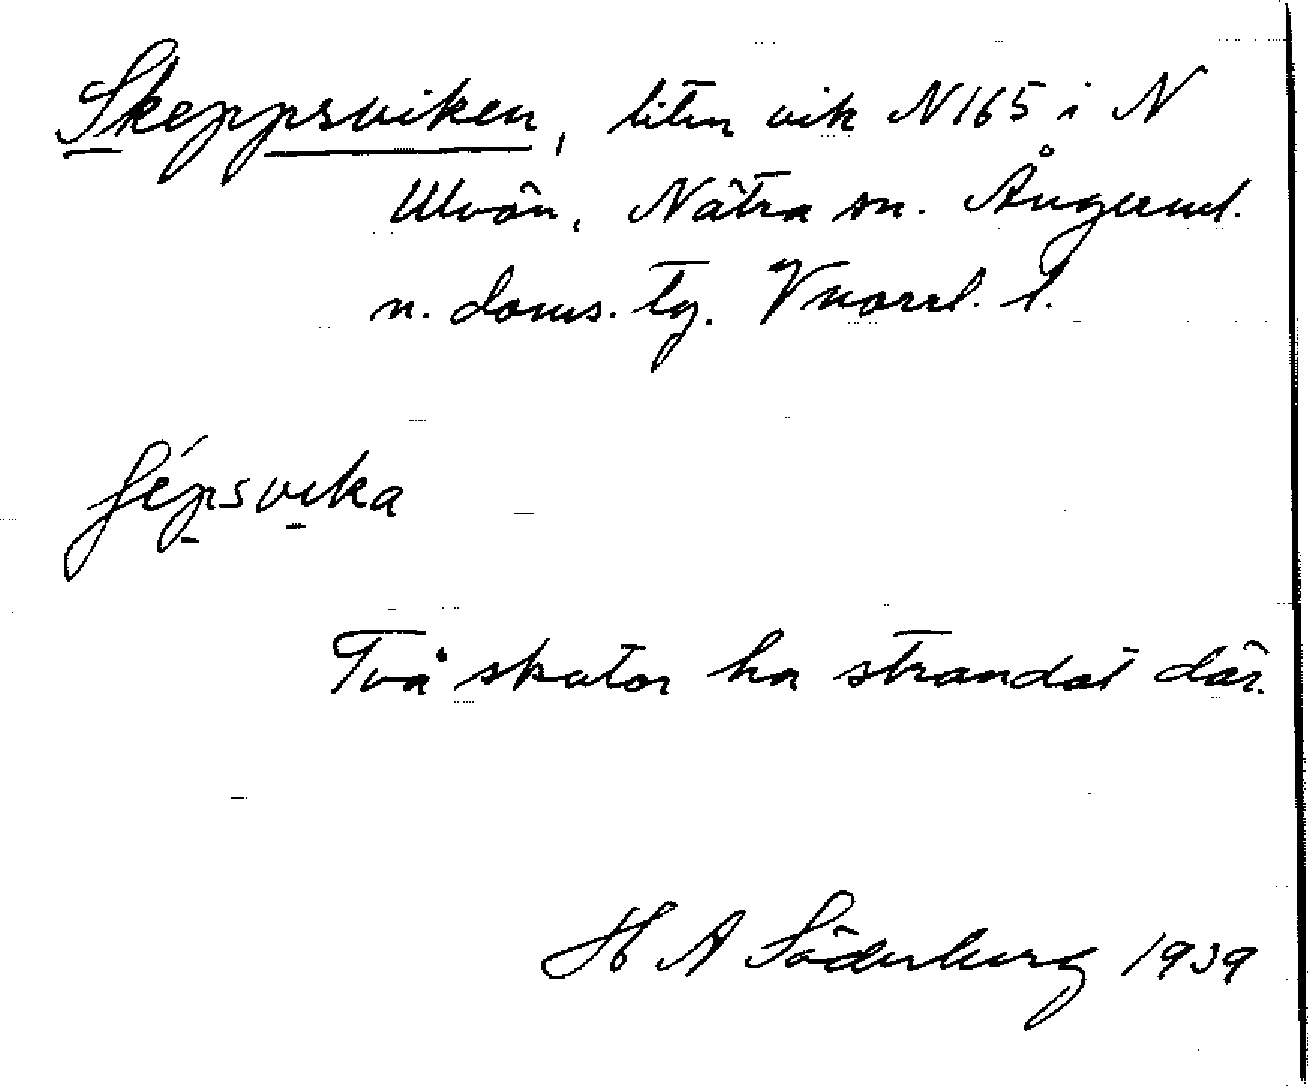 Skeppsviken, liten vik N 165 i N
Ulvön, Nätra sn. Ångerml.
n. doms. tg. Vnorrl. l.
ʃépsvika
Två skutor ha strandat där.
H A Söderberg 1939